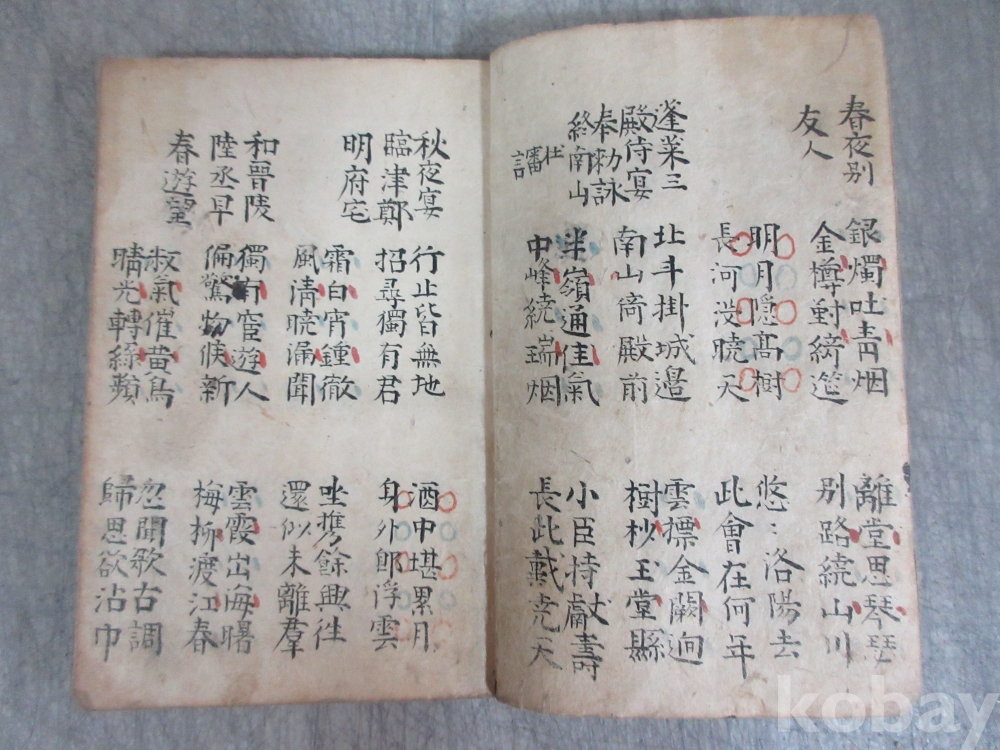 春夜别
友人
銀燭吐青烟
金樽對綺筵
離堂思琴瑟
别路繞山川
明月隱高樹
長河没曉天
悠〻洛陽去
此會在何年
蓬萊三
殿侍宴
奉勑詠
終南山
杜
北斗掛城邊
南山倚殿前
雲摽金闕迥
樹杪玉堂縣
半嶺通佳氣
中峰繞瑞烟
小臣持獻壽
長此戴尭天
秋夜宴
臨津鄭
明府宅
行止皆無地
招尋獨有君
酒中堪累月
身外郎浮雲
霜白宵鍾徹
風淸曉漏聞
坐携餘興徃
還似未離羣
和晉陵
陸丞早
春遊望
獨有宦遊人
偏驚物候新
雲霞出海曙
梅柳渡江春
叔氣催黄鳥
晴光轉綠蘋
忽聞歌古調
歸思欲沾巾
kobay